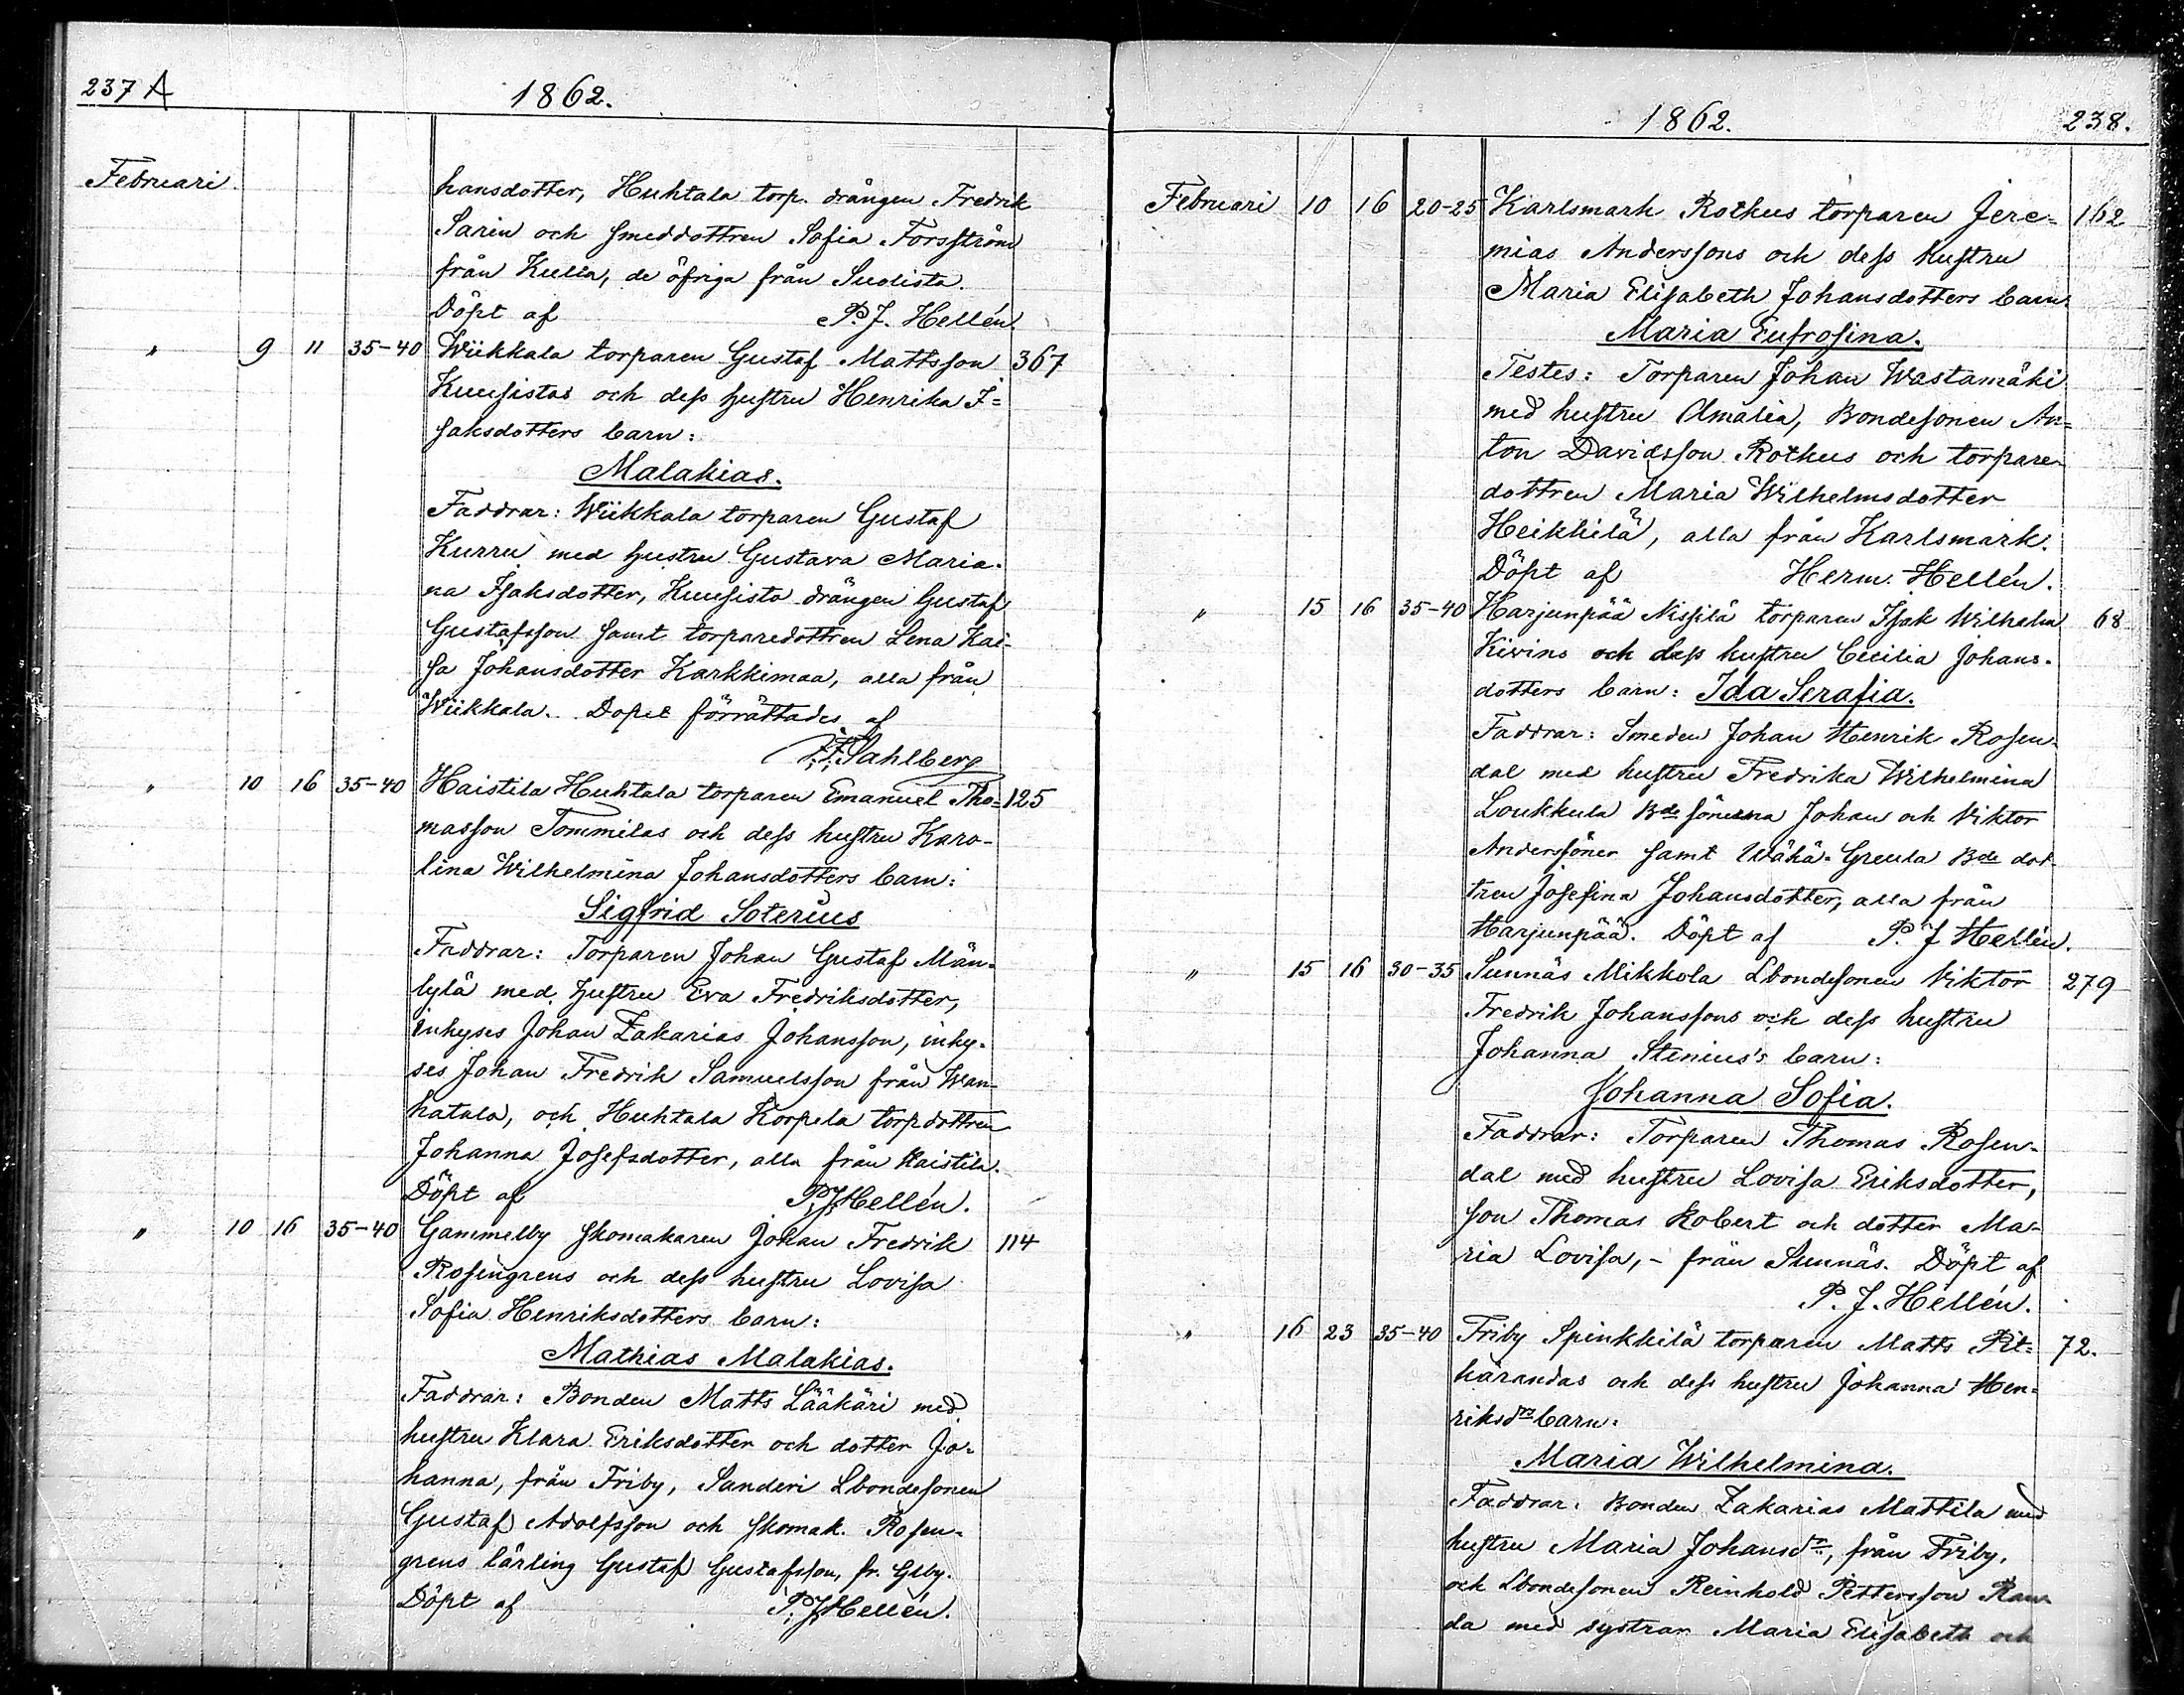 237 A
1862.
Februari
hansdotter, Huhtala torp. drängen Fredrik
Sarin och smeddottren Sofia Forsström
från Kulla, de öfriga från Suolista.
Döpt af P. J. Hellén.
" 9 11 35-40 Wiikkala torparen Gustaf Mattsson 367
Kuusistas och dess hustru Henrika I=
saksdotters barn:
Malakias.
Faddrar: Wiikkala torparen Gustaf
Kurru med hustru Gustava Maria-
na Isaksdotter, Kuusisto drängen Gustaf
Gustafsson samt torparedottren Lena Kai-
sa Johansdotter Karkkimaa, alla från
Wiikkala. Dopet förrättades af
F. F. Sahlberg
" 10 16 35-40 Haistila Huhtala torparen Emanuel Tho= 125
masson Tommilas och dess hustru Karo-
lina Wilhelmina Johansdotters barn:
Sigfrid Soterius
Faddrar: Torparen Johan Gustaf Män-
tylä med hustru Eva Fredriksdotter,
inhyses Johan Zakarias Johansson, inhy-
ses Johan Fredrik Samuelsson från Wan-
hatalo, och Huhtala Korpela torpdottren
Johanna Josefsdotter, alla från Haistila.
Döpt af P. J. Hellén.
" 10 16 35-40 Gammelby skomakaren Johan Fredrik 114
Rosengrens och dess hustru Lovisa
Sofia Henriksdotters barn:
Mathias Malakias.
Faddrar: Bonden Matts Lääkäri med
hustru Klara Eriksdotter och dotter Jo-
hanna, från Friby, Sanderi Lbondesonen
Gustaf Adolfsson och skomak. Rosen-
grens lärling Gustaf Gustafsson, fr. Glby.
Döpt af P. J. Hellén.
1862.
238.
Februari 10 16 20-25 Karlsmark Rothus torparen Jere= 162
mias Anderssons och dess hustru
Maria Elisabeth Johansdotters barn.
Maria Eufrosina.
Testes: Torparen Johan Wastamäki
med hustru Amalia, Bondesonen An=
ton Davidsson Rothus och torpare-
dottren Maria Wilhelmsdotter
Heikkilä, alla från Karlsmark.
Döpt af Herm. Hellén.
" 15 16 35-40 Harjunpää Nissilä torparen Isak Wilhelm 68
Kivins och dess hustru Cecilia Johans-
dotters barn: Ida Serafia.
Faddrar: Smeden Johan Henrik Rosen-
dal med hustru Fredrika Wilhelmina
Loukkula Bde sönerna Johan och Viktor
Anderssöner samt Wähä-Greula Bde dot-
tren Josefina Johansdotter, alla från
Harjunpää. Döpt af P. J Hellén.
" 15 16 30-35 Sunnäs Mikkola Lbondesonen Viktor 279
Fredrik Johanssons och dess hustru
Johanna Stenius's barn:
Johanna Sofia.
Faddrar: Torparen Thomas Rosen-
dal med hustru Lovisa Eriksdotter,
son Thomas Robert och dotter Ma-
ria Lovisa, - från Sunnäs. Döpt af
P. J. Hellén.
" 16 23 35-40 Friby Spinkkilä torparen Matts Pit= 72.
kärandas och dess hustru Johanna Hen=
riksdrs barn:
Maria Wilhelmina.
Faddrar: Bonden Zakarias Mattila med
hustru Maria Johansdr, från Friby,
och Lbondesonen Reinhold Pettersson Ran
da med systrar Maria Elisabeth och